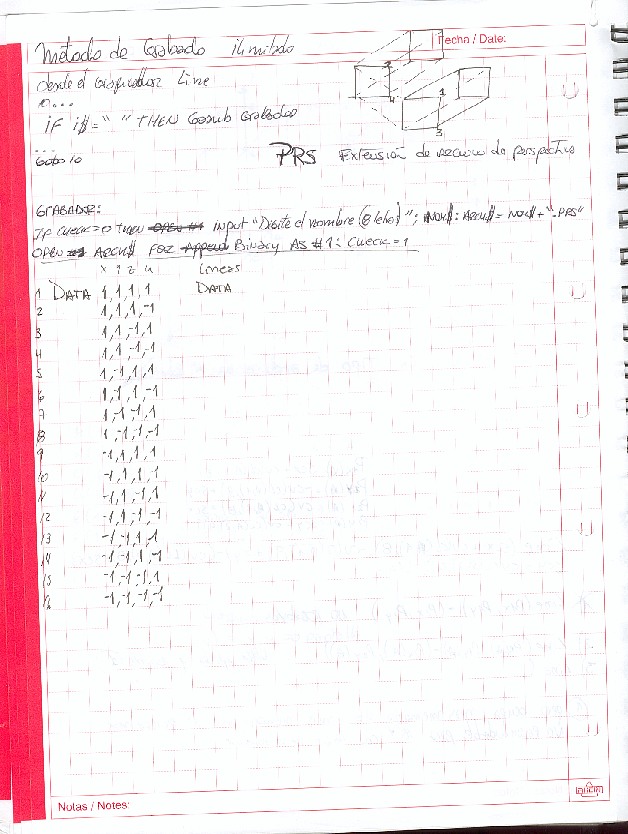 Metodo de Grabado ilimitado
Fecha / Date:
Desde el Graficador Line
10...
IF i$=" " THEN Gosub Grabador
...
Goto 10
PRS Extensión de archivo de perspectiva
GRABADOR:
IF CHECK=0 THEN OPEN #1 INPUT "Digite el nombre (8 letras)"; NOM$: ARCH$= NOM$+".PRS"
OPEN #1 ARCH$ FOR Append Binary AS #1: CHECK=1
X Y Z W Lineas
1 DATA 1,1,1,1 DATA
2 1,1,1,-1
3 1,1,-1,1
4 1,1-1,-1
5 1,-1,1,1
6 1,-1,1,-1
7 1,-1-1,1
8 1,-1,-1,-1
9 -1,1,1,1
10 -1,1,1,-1
11 -1,1,-1,1
12 -1,1,-1,-1
13 -1,-1,1,1
14 -1,-1,1,-1
15 -1,-1,-1,1
16 -1,-1,-1,-1
1
2
3
Notas / Notes: